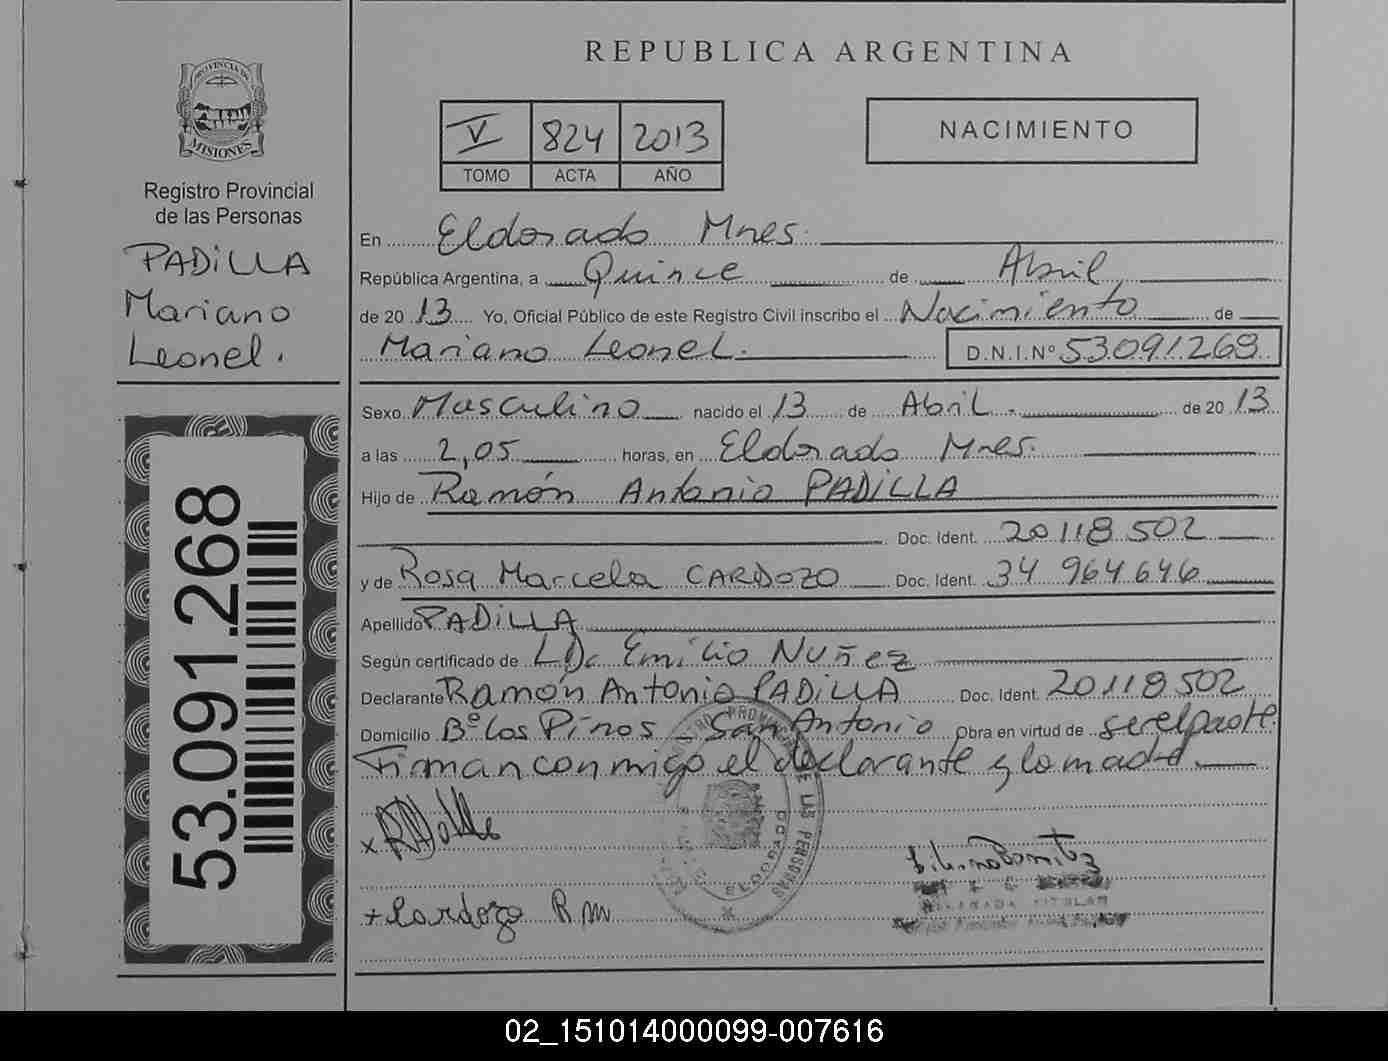 REPUBLICA ARGENTINA
PROVINCIA DE
MISIONES
Registro Provincial
de las Personas
PADiLLA
Mariano
Leonel.
53.091.268
V 824 2013
TOMO ACTA AÑO
NACIMIENTO
En Eldorado Mnes.
República Argentina, a Quince de Abril
de 20 13 Yo, Oficial Público de este Registro Civil inscribo el Nacimiento de
Mariano Leonel. D.N.I.Nº 53.091.268
Sexo Masculino nacido el 13 de Abril. de 20 13
a las 2,05 horas, en Eldorado Mnes.
Hijo de Ramón Antonio PADiLLA
Doc. Ident. 20.118.502
y de Rosa Marcela CARDOZO Doc. Ident. 34 964.646
Apellido PADiLLA
Según certificado de Emilio Nuñez
Declarante Ramón Antonio PADiLLA Doc. Ident. 20.118.502
Domicilio Bº Los Pinos - San Antonio Obra en virtud de ser el padre
Firman conmigo el declarante y la madre.
x
+ Cardozo R M
ELDORADO
DE LAS PERSONAS
TITULAR
02_151014000099-007616